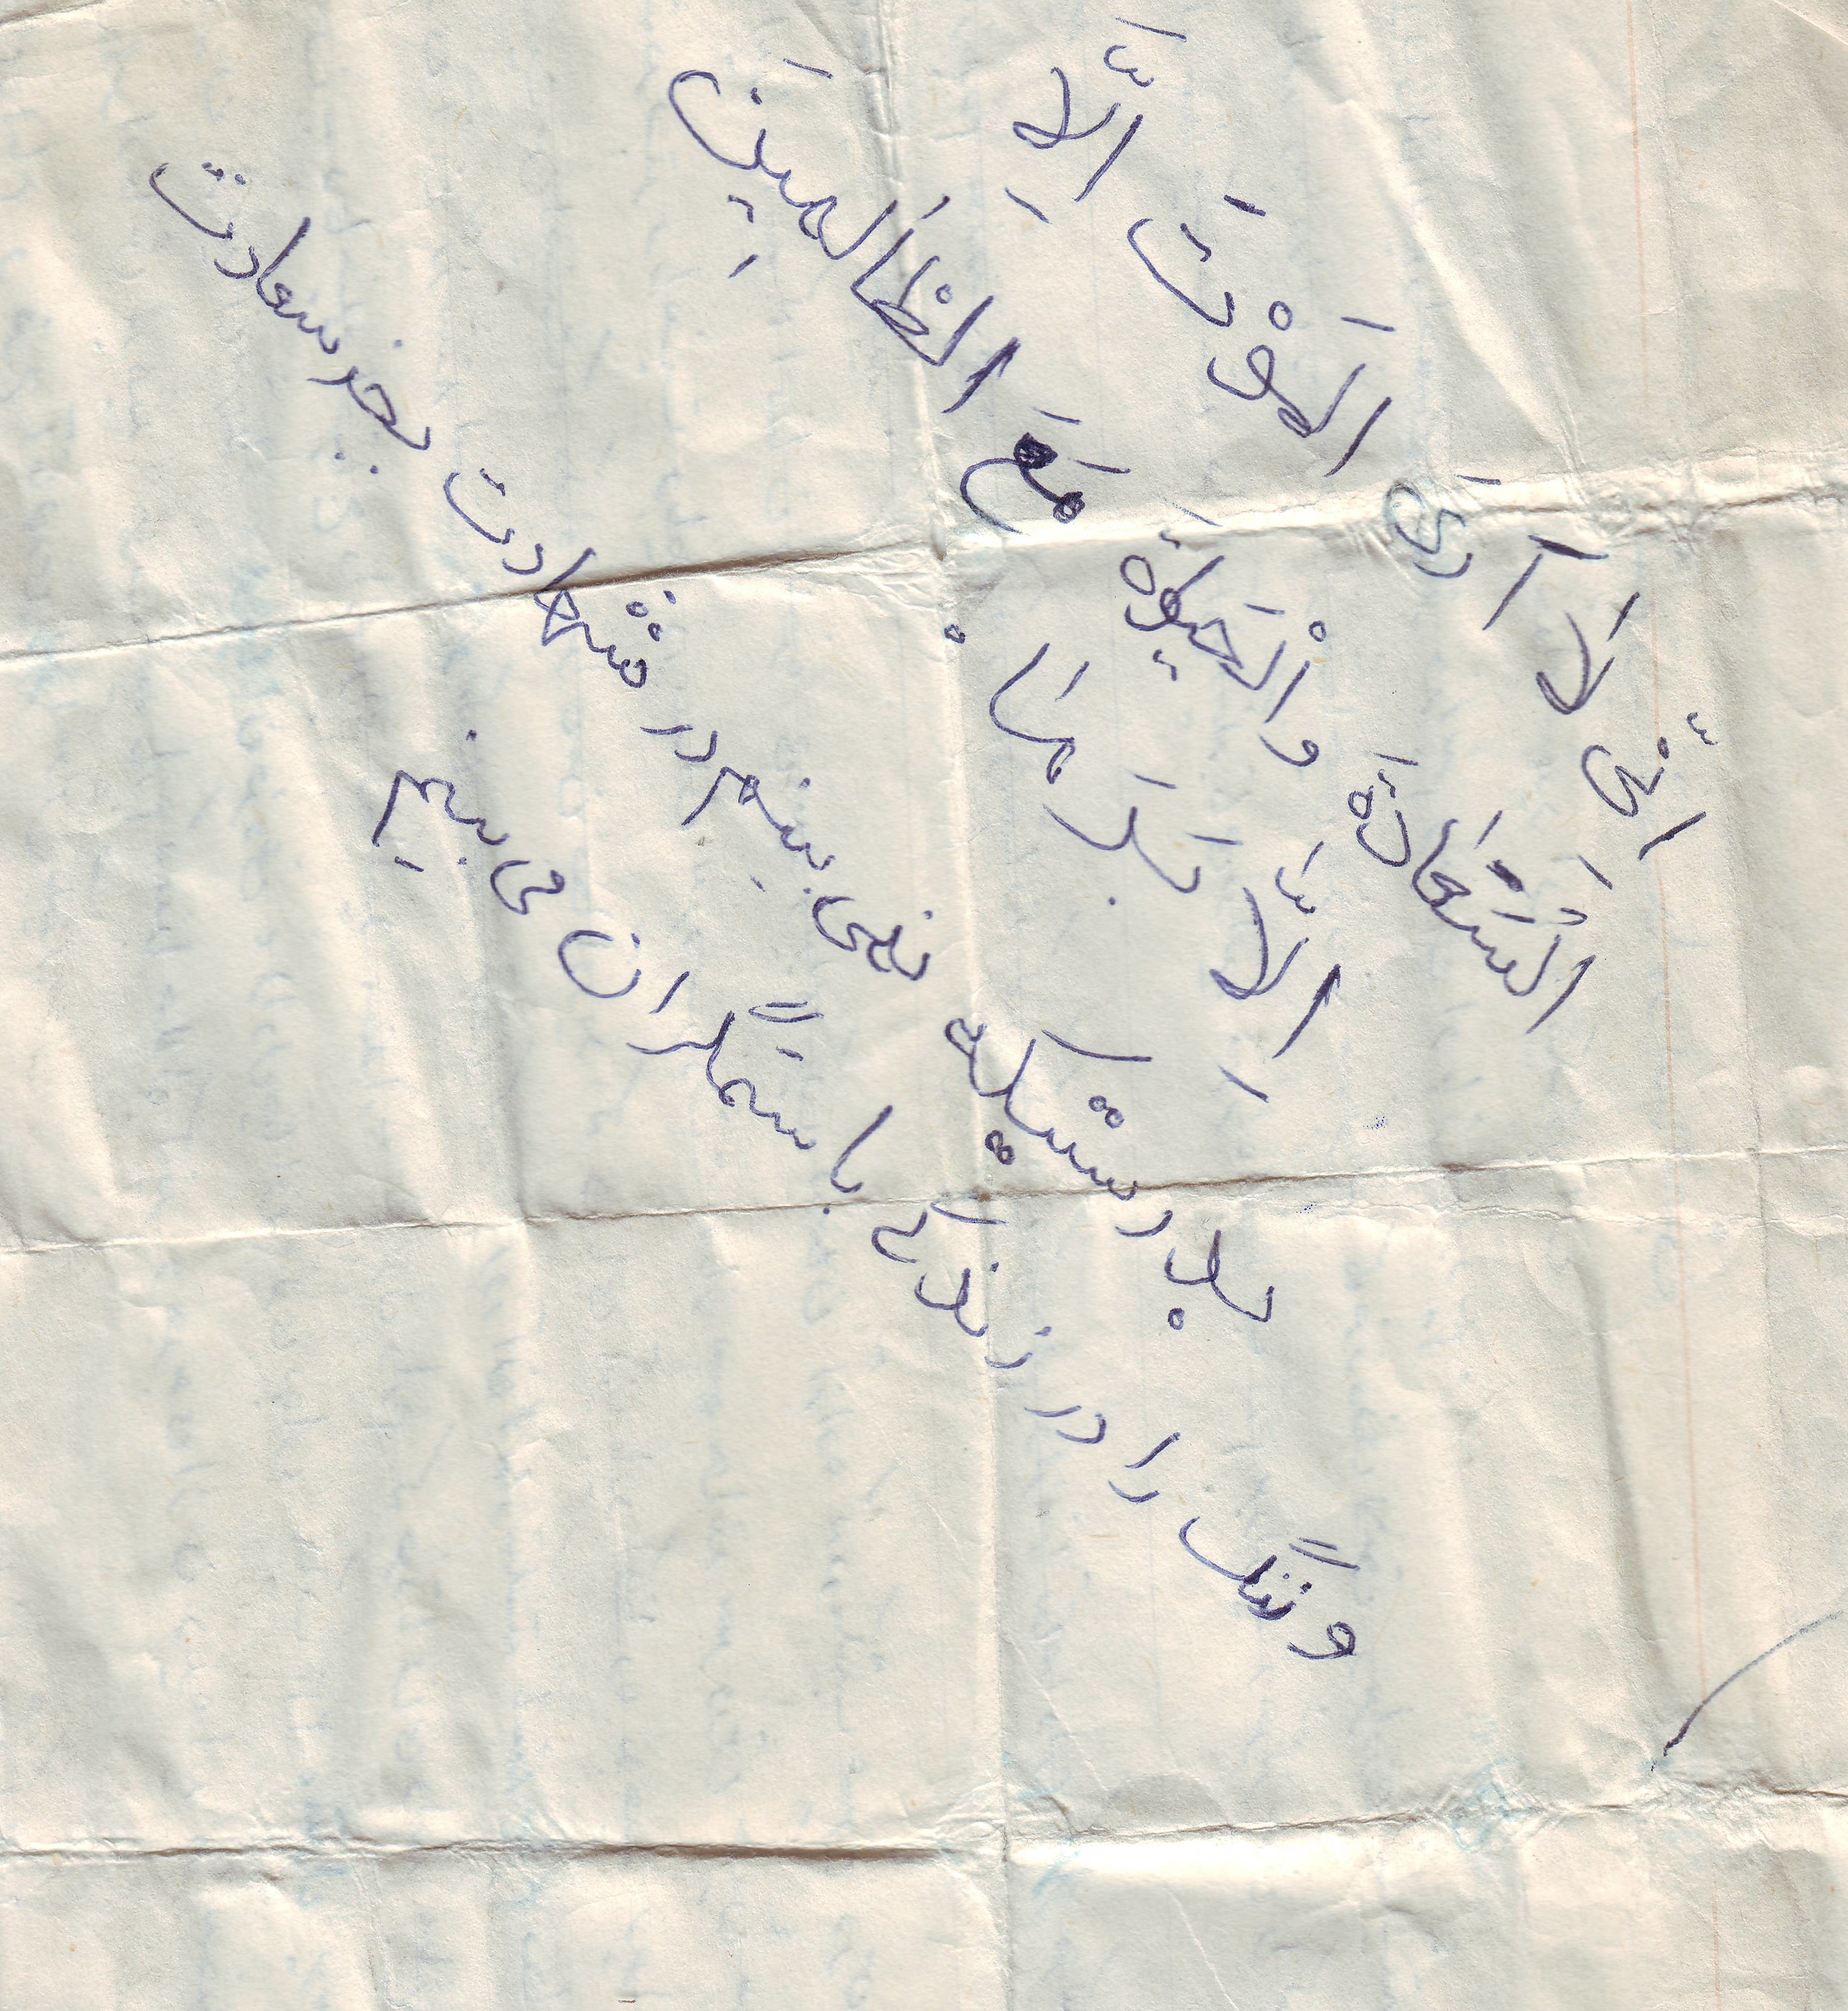 اِنّی لَا اَرَی المَوْتَ اِلَّا
السَّعَادَةَ وَالْحَیوٰةَ مَعَ الظَالمِینَ
اِلَّا بَرَمَا
بدرستیکه نمی بینم در شهادت بجز سعادت
و ننگ را در زندگی با ستمگران می بینم